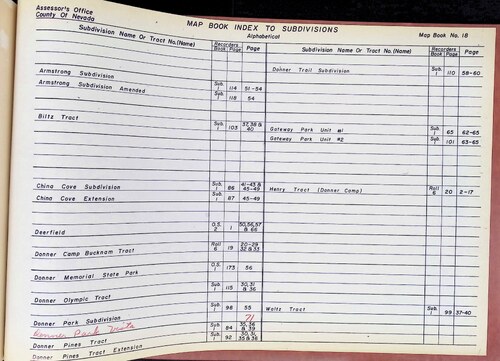 Assessor's Office
County Of Nevada
MAP BOOK INDEX TO SUBDIVISIONS
Alphabetical
Map Book No. 18
Subdivision Name Or Tract No.(Name) Recorders Book Page Page
Subdivision Name Or Tract No.(Name) Recorders Book Page Page
Donner Trail Subdivision Sub. 1 110 58-60
Armstrong Subdivision Sub. 1 114 51-54
Armstrong Subdivision Amended Sub. 1 118 54
Biltz Tract Sub. 1 103 37,38 & 40
Gateway Park Unit #1 Sub. 1 65 62-65
Gateway Park Unit #2 Sub. 1 101 63-65
China Cove Subdivision Sub. 1 86 41-43 & 45-49
China Cove Extension Sub. 1 87 45-49
Henry Tract (Donner Camp) Roll 6 20 2-17
Deerfield O.S. 2 1 50,56,57 & 66
Donner Camp Bucknam Tract Roll 6 19 20-29 32 & 33
Donner Memorial State Park O.S. 1 173 56
Donner Olympic Tract Sub. 1 115 30,31 & 36
Donner Park Subdivision Sub. 1 98 55
Donner Park 71
Donner Pines Tract Sub. 1 84 35,36 & 39
Donner Pines Tract Extension Sub. 1 92 30,31, 35 & 38
Waltz Tract Sub. 1 99 37-40